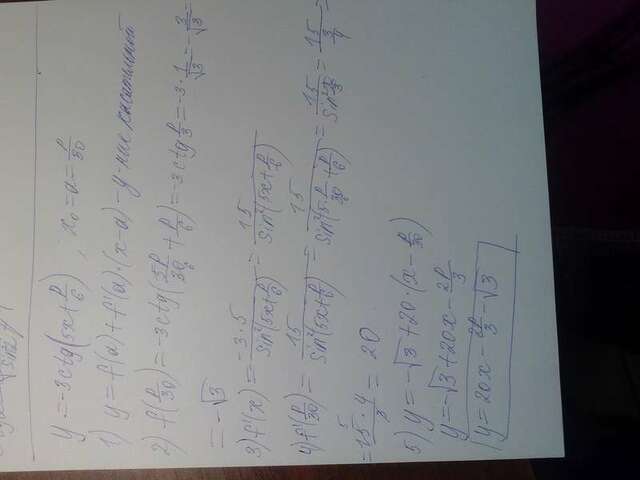 y = -3ctg(5x+π/6), x₀=a=π/30
1) y = f(a)+f'(a)·(x-a) - у-ние касательной
2) f(π/30) = -3ctg(5π/30+π/6) = -3ctg π/3 = -3·1/√3 = -3/√3
= -√3
3) f'(x) = -(-3·5)/sin²(5x+π/6) = 15/sin²(5x+π/6)
4) f'(π/30) = 15/sin²(5x+π/6) = 15/sin²(5·π/30+π/6) = 15/sin²π/3 = 15/(3/4) =
= 15·4/3 = 20
5) y = -√3+20·(x-π/30)
y = -√3+20x-2π/3
y = 20x-2π/3-√3